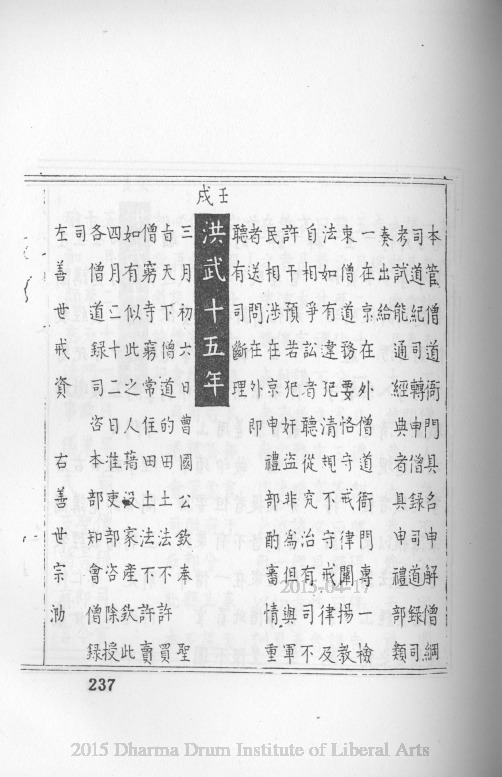 本管僧道衙門具名申解僧綱
司道紀司轉申僧錄司道錄司
考試能通經典者具申禮部類
奏出給
一在京在外僧道衙門專一檢
束僧道務要恪守戒律闡揚教
法如有違犯清規不守戒律及
自相爭訟者聽從究治有司不
許干預若犯奸盜非為但與軍
民相涉在京申禮部酌審情重
者送問在外即
聽有司斷理
壬戌
洪武十五年
三月初六日曹國公欽奉 聖
旨天下僧道的田土法不許買
僧窮寺窮常住田土法不許賣
如有似此之人藉沒家產欽此
四月二十二日准吏部咨除授
各僧道錄司咨本部知會僧錄
司
左善世戒資 右善世宗泐
237
2015-04-17
2015 Dharma Drum Institute of Liberal Arts